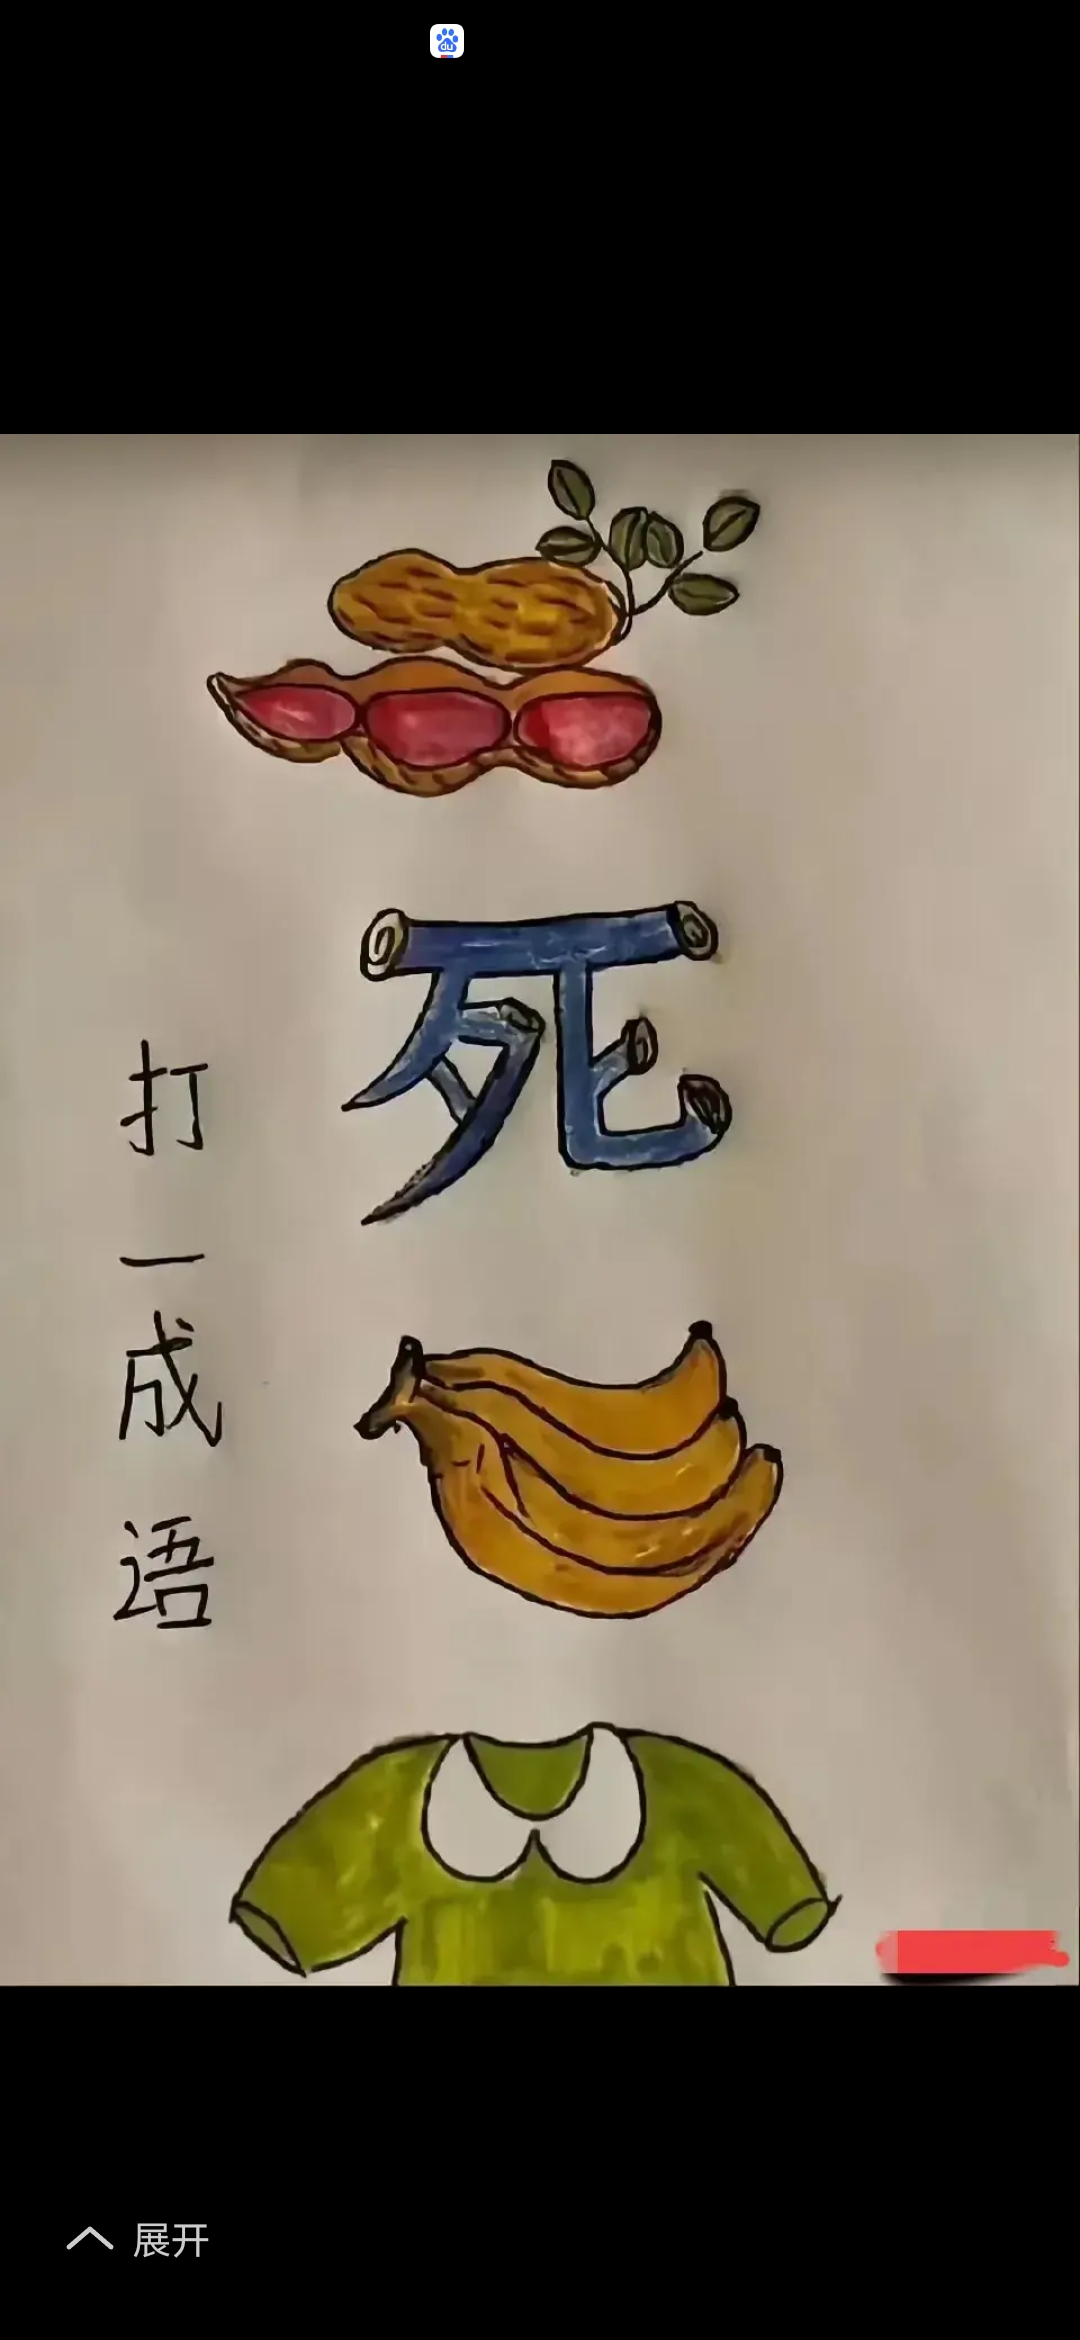 du
死
打
一
成
语
展开